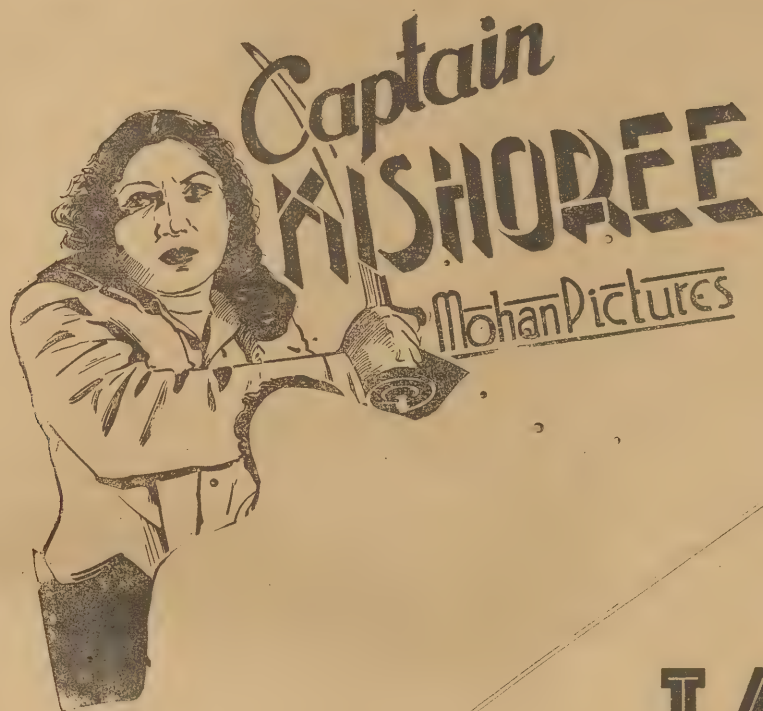 Captain
KISHOREE
Mohan Pictures